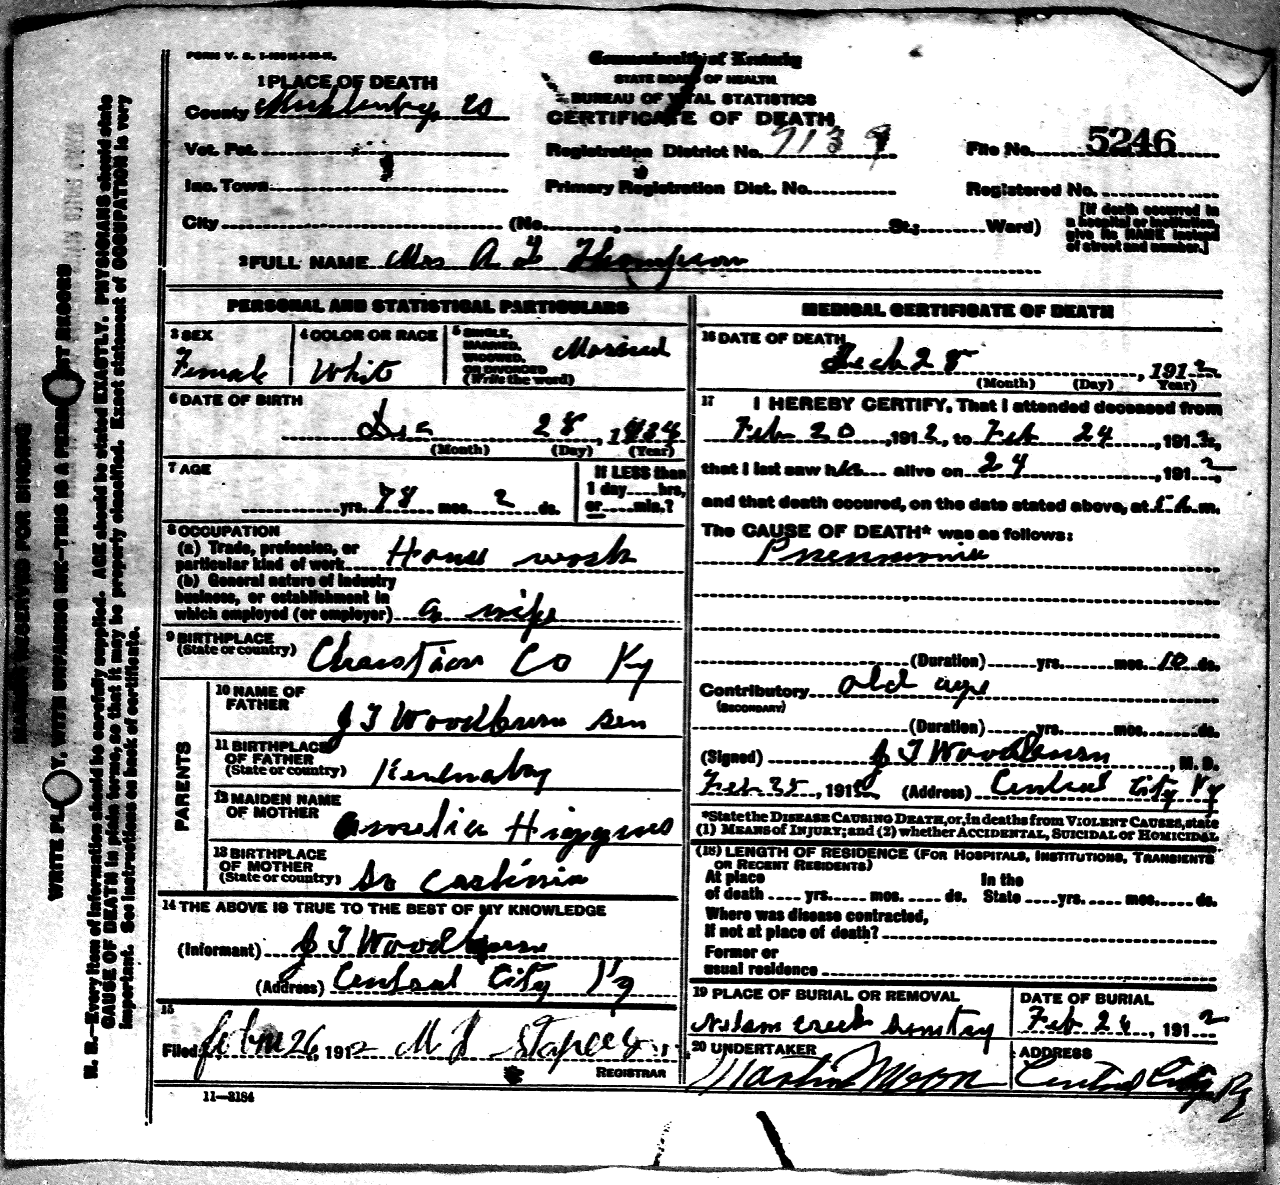 Commonwealth of Kentucky
STATE BOARD OF HEALTH
BUREAU OF VITAL STATISTICS
CERTIFICATE OF DEATH
1 PLACE OF DEATH
County Muhlenberg Co
Vot. Pct.
Registration District No.
File No. 5246
Inc. Town
Primary Registration Dist. No.
Registered No.
City (No. , St.; Ward)
[If death occurred in a hospital or institution, give its NAME instead of street and number.]
2 FULL NAME Mrs A T Thompson
PERSONAL AND STATISTICAL PARTICULARS
3 SEX Female
4 COLOR OR RACE White
5 SINGLE, MARRIED, WIDOWED, OR DIVORCED (Write the word) Married
6 DATE OF BIRTH
Dec 28
(Month) (Day) (Year)
7 AGE
yrs. 78 mos. 2 ds.
If LESS than 1 day hrs, or min.?
8 OCCUPATION
(a) Trade, profession, or particular kind of work House work
(b) General nature of industry business, or establishment in which employed (or employer) a wife
9 BIRTHPLACE (State or country) Chirstian Co Ky
PARENTS
10 NAME OF FATHER J T Woodburn Sen
11 BIRTHPLACE OF FATHER (State or country)
12 MAIDEN NAME OF MOTHER Amelia
13 BIRTHPLACE OF MOTHER (State or country) So
14 THE ABOVE IS TRUE TO THE BEST OF MY KNOWLEDGE
(Informant) J T Woodburn
(Address) Central City Ky
15
Filed 26, 1912
REGISTRAR
11-3184
MEDICAL CERTIFICATE OF DEATH
16 DATE OF DEATH
, 1912
(Month) (Day) Year)
17 I HEREBY CERTIFY, That I attended deceased from
Feb 20, 1912, to Feb 24, 1912,
that I last saw h alive on 24, 1912,
and that death occured, on the date stated above, at m.
The CAUSE OF DEATH* was as follows:
Pneumonia
(Duration) yrs. mos. 10 ds.
Contributory old age
(SECONDARY)
(Duration) yrs. mos. ds.
(Signed) J T Woodburn, M. D.
Feb 25, 1912 (Address) Central City Ky
*State the DISEASE CAUSING DEATH, or, in deaths from VIOLENT CAUSES, state
(1) MEANS of INJURY; and (2) whether ACCIDENTAL, SUICIDAL or HOMICIDAL
(18) LENGTH OF RESIDENCE (FOR HOSPITALS, INSTITUTIONS, TRANSIENTS
OR RECENT RESIDENTS)
At place of death yrs. mos. ds. In the State yrs. mos. ds.
Where was disease contracted,
If not at place of death?
Former or
usual residence
19 PLACE OF BURIAL OR REMOVAL
Creek
DATE OF BURIAL
Feb 26, 1912
20 UNDERTAKER
Martin Moon
ADDRESS
Central City Ky
MARGIN RESERVED FOR BINDING
WRITE PLAINLY, WITH UNFADING INK—THIS IS A PERMANENT RECORD
N. B.—Every item of information should be carefully supplied. AGE should be stated EXACTLY. PHYSICIANS should state
CAUSE OF DEATH in plain terms, so that it may be properly classified. Exact statement of OCCUPATION is very
important. See instructions on back of certificate.